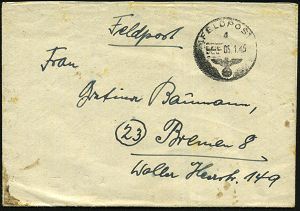 Feldpost
FELDPOST
a
05.1.45
Frau
Baumann,
23 Bremen 8
Waller Heerstr. 149